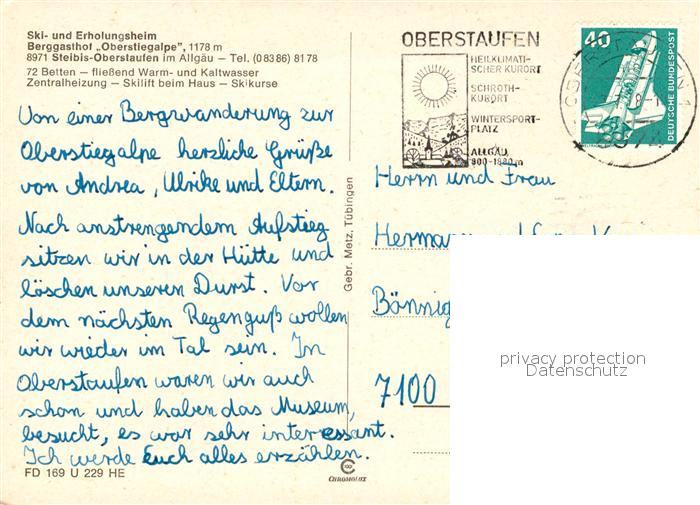 Ski- und Erholungsheim
Berggasthof „Oberstiegalpe", 1178 m
8971 Steibis-Oberstaufen im Allgäu — Tel. (08386) 8178
72 Betten — fließend Warm- und Kaltwasser
Zentralheizung — Skilift beim Haus — Skikurse
Von einer Bergwanderung zur
Oberstiegalpe herzliche Grüße
von Andrea, Ulrike und Eltern.
Nach anstrengendem Aufstieg
sitzen wir in der Hütte und
löschen unseren Durst. Vor
dem nächsten Regenguß wollen
wir wieder im Tal sein. In
Oberstaufen waren wir auch
schon und haben das Museum,
besucht, es war sehr interessant.
Ich werde Euch alles erzählen.
FD 169 U 229 HE
Gebr. Metz, Tübingen
CHROMOLUX
OBERSTAUFEN
HEILKLIMATI-
SCHER KURORT
SCHROTH-
KURORT
WINTERSPORT-
PLATZ
ALLGÄU
800-1800 m
40
DEUTSCHE BUNDESPOST
Herrn und Frau
7100
privacy protection
Datenschutz